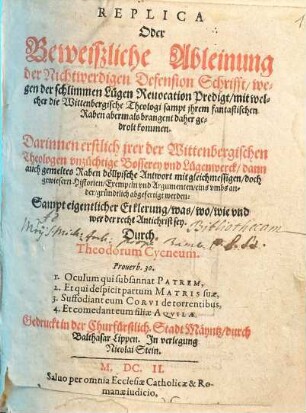 REPLICA
Oder
Beweißliche Ableinung
der Nichtwerdigen Defension Schrifft/ we-
gen der schlimmen Lügen Reuocation Predigt/ mit wel-
cher die Wittenbergische Theologi sampt jhrem fantastischen
Raben abermals brangent daher ge-
drolt kommen.
Darinnen erstlich jrer der Wittenbergischen
Theologen vnzüchtige Bosserey vnd Lügenwerck/ dann
auch gemeltes Raben döllpische Antwort mit gleichmessigen/ doch
gewissern Historien/ Exempeln vnd Argumenten/ eins vmbs an-
der/ gründlich abgefertigt werden:
Sampt eigentlicher Erklerung/ was/ wo/ wie vnd
wer der recht Antichrist sey.
Bibliothecam
Durch.
Theodorum Cycneum.
Prouerb. 30.
1. Oculum qui subsannat PATREM,
2. Et qui despicit partum MATRIS suæ,
3. Suffodiant eum CORVI de torrentibus,
4. Et comedant eum filiæ AQVILÆ.
Gedruckt in der Churfürstlich. Stadt Mäyntz/ durch
Balthasar Lippen. In verlegung
Nicolai Stein.
M. DC. II.
Saluo per omnia Ecclesiæ Catholicæ & Ro-
manæ iudicio,